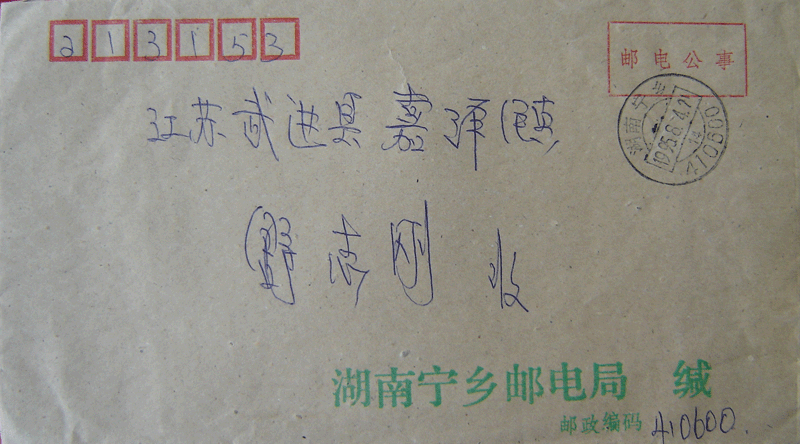 213153
邮电公事
湖南宁乡
410600
江苏武进县嘉泽镇
志刚 收
湖南宁乡邮电局 缄
邮政编码 410600.